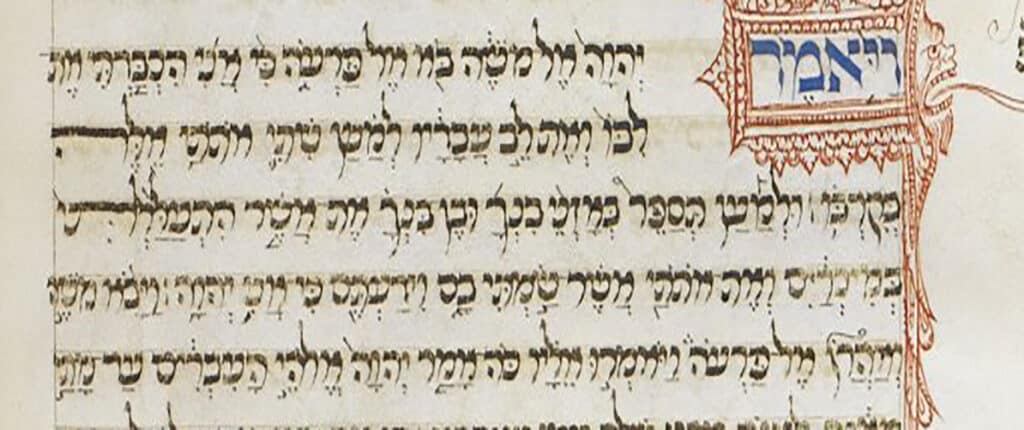 וַיֹּאמֶר יְהוָה אֶל מֹשֶׁה בֹּא אֶל פַּרְעֹה כִּי אֲנִי הִכְבַּדְתִּי אֶת
לִבּוֹ וְאֶת לֵב עֲבָדָיו לְמַעַן שִׁתִי אֹתֹתַי אֵלֶּה
בְּקִרְבּוֹ׃ וּלְמַעַן תְּסַפֵּר בְּאָזְנֵי בִנְךָ וּבֶן בִּנְךָ אֵת אֲשֶׁר הִתְעַלַּלְתִּי
בְּמִצְרַיִם וְאֶת אֹתֹתַי אֲשֶׁר שַׂמְתִּי בָם וִידַעְתֶּם כִּי אֲנִי יְהוָה׃ וַיָּבֹא מֹשֶׁה
וְאַהֲרֹן אֶל פַּרְעֹה וַיֹּאמְרוּ אֵלָיו כֹּה אָמַר יְהוָה אֱלֹהֵי הָעִבְרִים עַד מָתַי